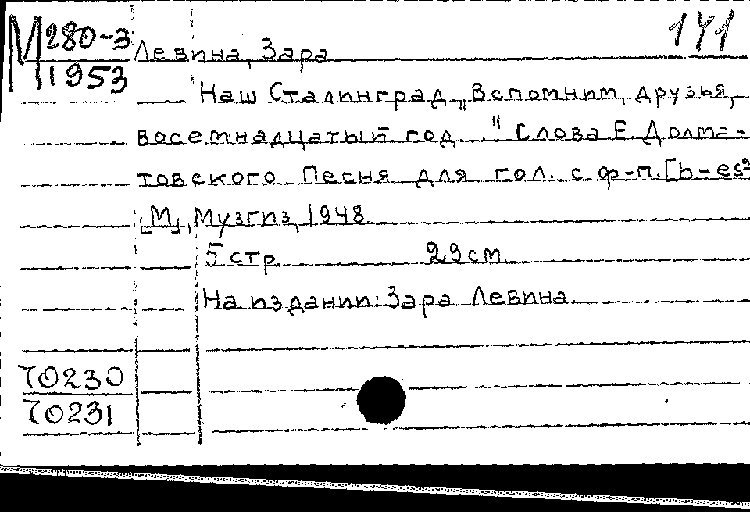 М 280-3
11953
141
Левина, Зара
Наш Сталинград. „Вспомним, друзья,
восемнадцатый год..." Слова Е. Долма-
товского Песня для гол. с ф-п. [h-es²
[М], Музгиз, 1948.
5 стр. 29 см.
На издании: Зара Левина.
70230
70231